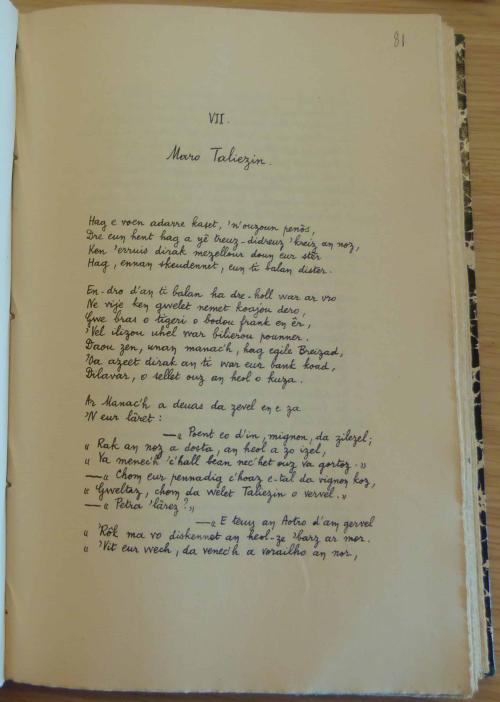 81
VII.
Maro Taliezin.
Hag e voen adarre kaset, 'n'ouzoun penôs,
Dre eun hent hag a yê treuz-didreuz 'kreiz an noz,
Ken 'erruis dirak mezellour doun eur stêr
Hag, ennan skeudennet, eun ti balan dister.
En-dro d'an ti balan ha dre-holl war ar vro
Ne vije ken gwelet nemet koajou dero,
Gwe bras o tigeri o bodou frank en êr,
'Vel ilizou uhel war bilierou pounner.
Daou zen, unan manac'h, hag egile Breizad,
'Oa azeet dirak an ti war eur bank koad,
Dilavar, o sellet ouz an heol o kuza.
Ar Manac'h a deuas da zevel en e za
'N eur lâret :
—„ Poent eo d'in, mignon, da zilezel;
„ Rak an noz a dosta, an heol a zo izel,
„ Va menec'h 'c'hall bean nec'het ouz va gortoz. »
—„ Chom eur pennadig c'hoaz e-tal da vignon koz,
„ Gweltaz, chom da welet Taliezin o vervel. »
—„ Petra 'lârez ? „
—„ E teuy an Aotro d'am gervel
„ 'Rôk ma vo diskennet an heol-ze 'barz ar mor.
„ 'Vit eur wech, da venec'h a vorailho an nor,